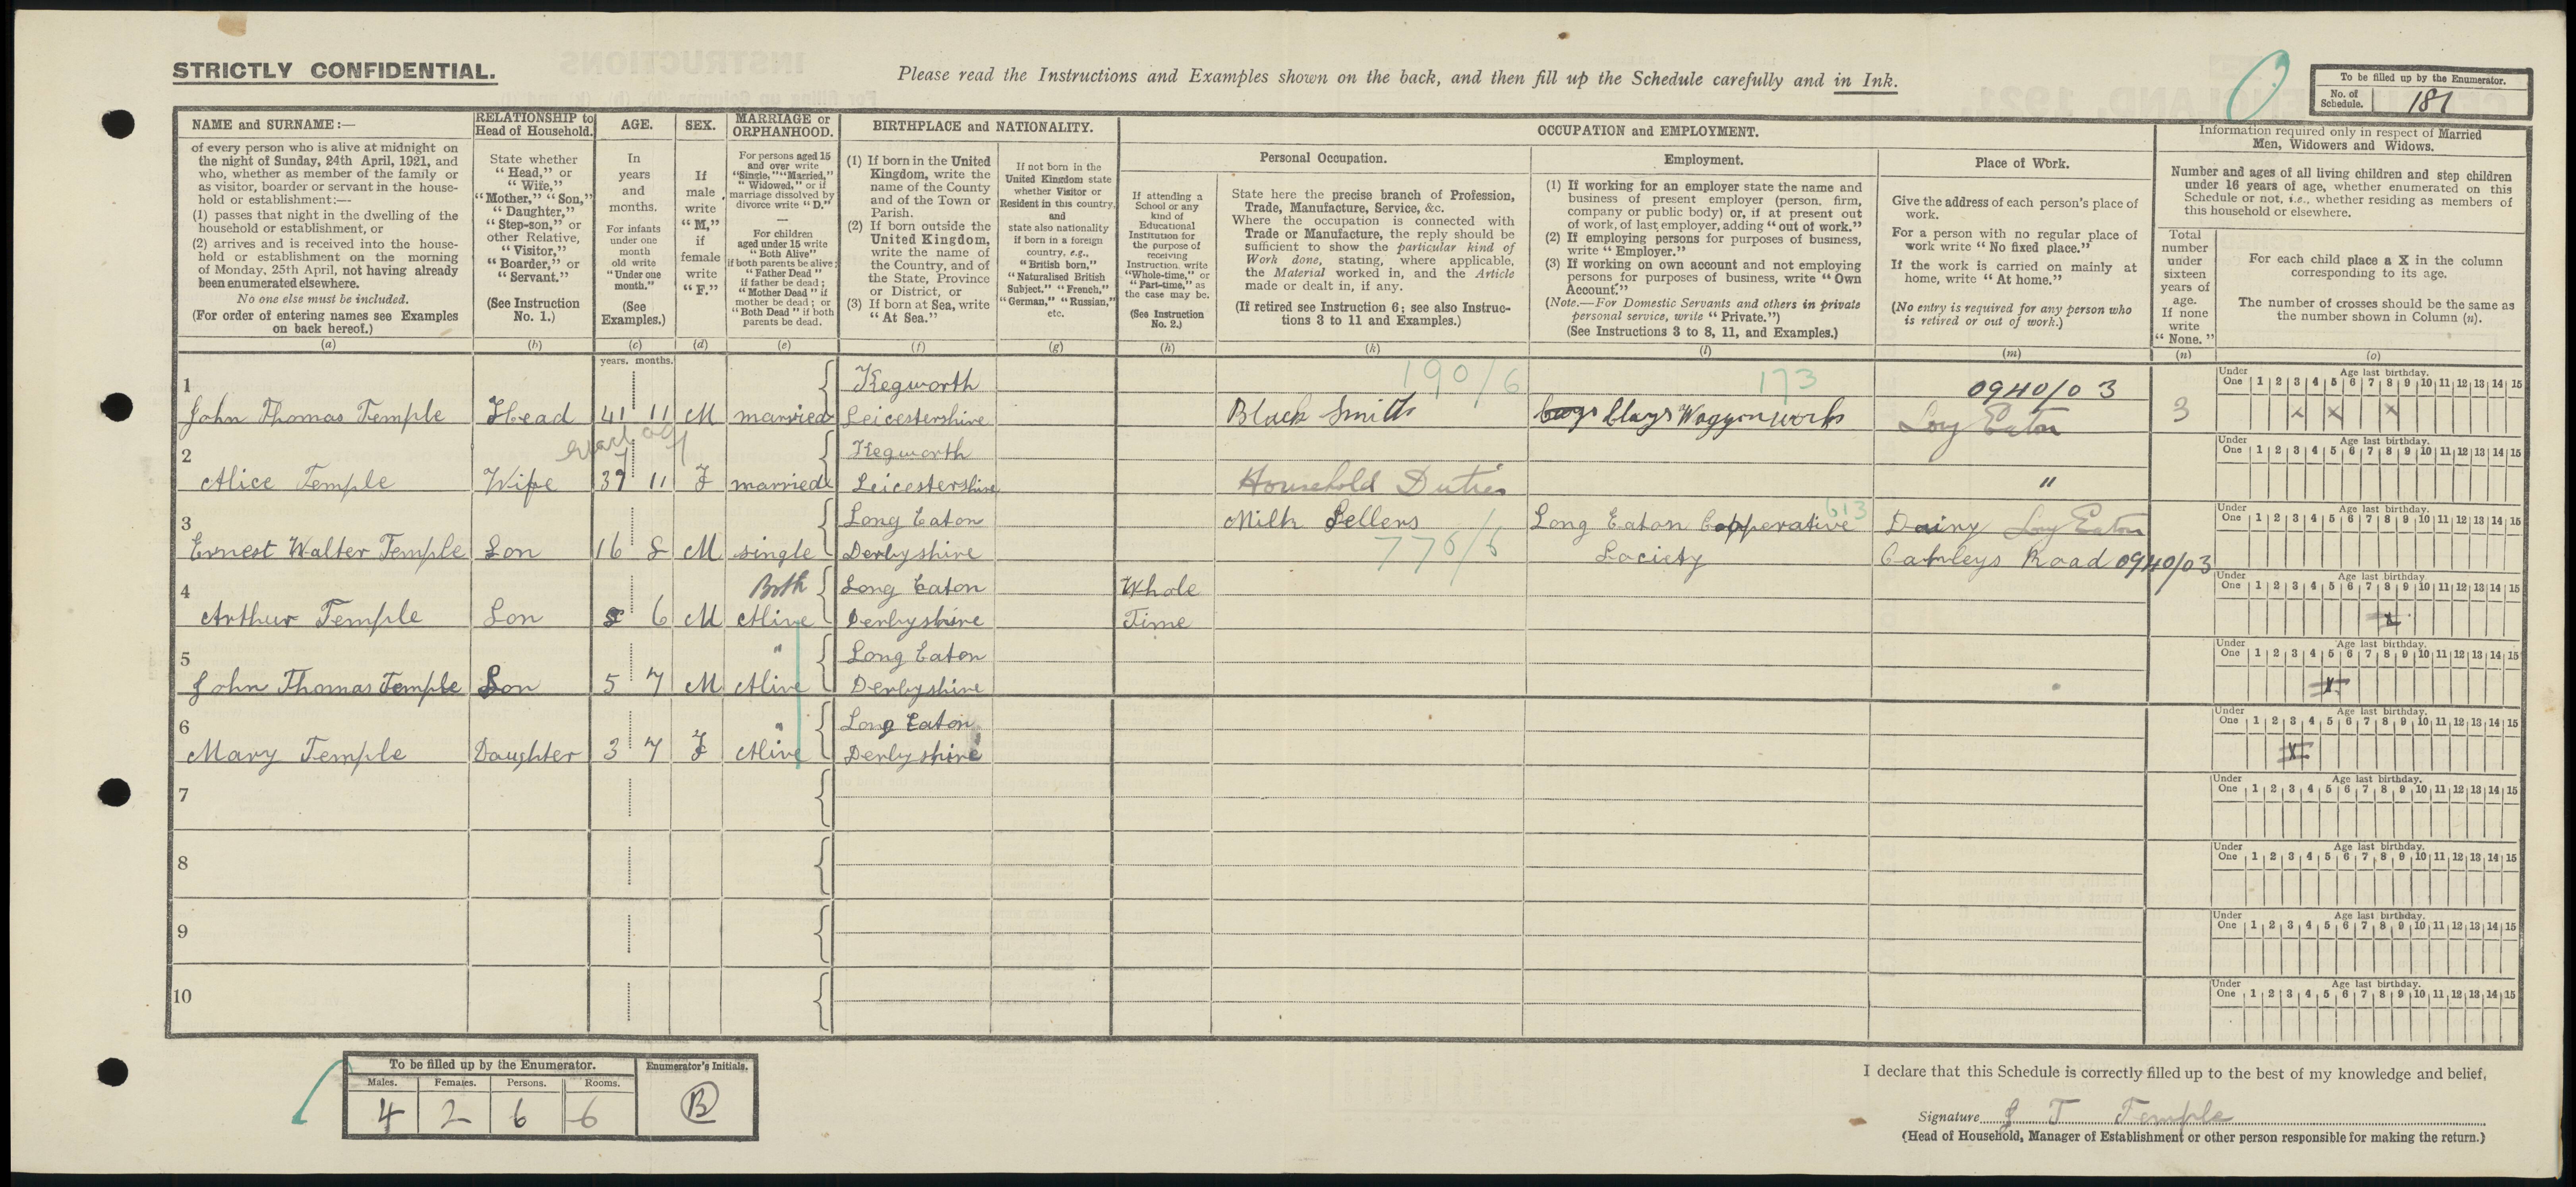 STRICTLY CONFIDENTIAL.
Please read the Instructions and Examples shown on the back, and then fill up the Schedule carefully and in Ink.
To be filled up by the Enumerator.
No. of Schedule. 181
NAME and SURNAME:—
of every person who is alive at midnight on
the night of Sunday, 24th April, 1921, and
who, whether as member of the family or
as visitor, boarder or servant in the house-
hold or establishment:—
(1) passes that night in the dwelling of the
household or establishment, or
(2) arrives and is received into the house-
hold or establishment on the morning
of Monday, 25th April, not having already
been enumerated elsewhere.
No one else must be included.
(For order of entering names see Examples
on back hereof.)
(a)
RELATIONSHIP to
Head of Household.
State whether
"Head," or
"Wife,"
"Mother," "Son,"
"Daughter,"
"Step-son," or
other Relative,
"Visitor,"
"Boarder," or
"Servant."
(See Instruction
No. 1.)
(b)
AGE.
In
years
and
months.
For infants
under one
month
old write
"Under one
month."
(See
Examples.)
(c)
SEX.
If
male
write
"M,"
if
female
write
"F."
(d)
MARRIAGE or
ORPHANHOOD.
For persons aged 15
and over write
"Single," "Married,"
"Widowed," or if
marriage dissolved by
divorce write "D."
—
For children
aged under 15 write
"Both Alive"
if both parents be alive;
"Father Dead"
if father be dead;
"Mother Dead" if
mother be dead; or
"Both Dead" if both
parents be dead.
(e)
BIRTHPLACE and NATIONALITY.
(1) If born in the United
Kingdom, write the
name of the County
and of the Town or
Parish.
(2) If born outside the
United Kingdom,
write the name of
the Country, and of
the State, Province
or District, or
(3) If born at Sea, write
"At Sea."
(f)
If not born in the
United Kingdom state
whether Visitor or
Resident in this country,
and
state also nationality
if born in a foreign
country, e.g.,
"British born,"
"Naturalised British
Subject," "French,"
"German," "Russian,"
etc.
(g)
OCCUPATION and EMPLOYMENT.
If attending a
School or any
kind of
Educational
Institution for
the purpose of
receiving
Instruction, write
"Whole-time," or
"Part-time," as
the case may be.
(See Instruction
No. 2.)
(h)
Personal Occupation.
State here the precise branch of Profession,
Trade, Manufacture, Service, &c.
Where the occupation is connected with
Trade or Manufacture, the reply should be
sufficient to show the particular kind of
Work done, stating, where applicable,
the Material worked in, and the Article
made or dealt in, if any.
(If retired see Instruction 6; see also Instruc-
tions 3 to 11 and Examples.)
(k)
Employment.
(1) If working for an employer state the name and
business of present employer (person, firm,
company or public body) or, if at present out
of work, of last employer, adding "out of work."
(2) If employing persons for purposes of business,
write "Employer."
(3) If working on own account and not employing
persons for purposes of business, write "Own
Account."
(Note.—For Domestic Servants and others in private
personal service, write "Private.")
(See Instructions 3 to 8, 11, and Examples.)
(l)
Place of Work.
Give the address of each person's place of
work.
For a person with no regular place of
work write "No fixed place."
If the work is carried on mainly at
home, write "At home."
(No entry is required for any person who
is retired or out of work.)
(m)
Information required only in respect of Married
Men, Widowers and Widows.
Number and ages of all living children and step children
under 16 years of age, whether enumerated on this
Schedule or not, i.e., whether residing as members of
this household or elsewhere.
Total
number
under
sixteen
years of
age.
If none
write
"None."
(n)
For each child place a X in the column
corresponding to its age.
The number of crosses should be the same as
the number shown in Column (n).
(o)
years. months.
1 Kegworth 190/6 173 0940/03
John Thomas Temple Head 41 11 M married Leicestershire Black Smith Clays Waggon works Long Eaton 3 x x x
2 Kegworth
Alice Temple Wife 37 11 F married Leicestershire Household Duties "
3 Long Eaton Milk Sellers Long Eaton Cooperative 613 Dairy Long Eaton
Ernest Walter Temple Son 16 8 M single Derbyshire 776/6 Society Road 0940/03
4 Both Long Eaton Whole
Arthur Temple Son 8 6 M Alive Derbyshire Time x
5 " Long Eaton
John Thomas Temple Son 5 7 M Alive Derbyshire x
6 " Long Eaton
Mary Temple Daughter 3 7 F Alive Derbyshire x
7
8
9
10
Under One 1 2 3 4 5 6 7 8 9 10 11 12 13 14 15
Age last birthday.
To be filled up by the Enumerator.
Males. Females. Persons. Rooms.
4 2 6 6
Enumerator's Initials.
B
I declare that this Schedule is correctly filled up to the best of my knowledge and belief,
Signature J T Temple
(Head of Household, Manager of Establishment or other person responsible for making the return.)